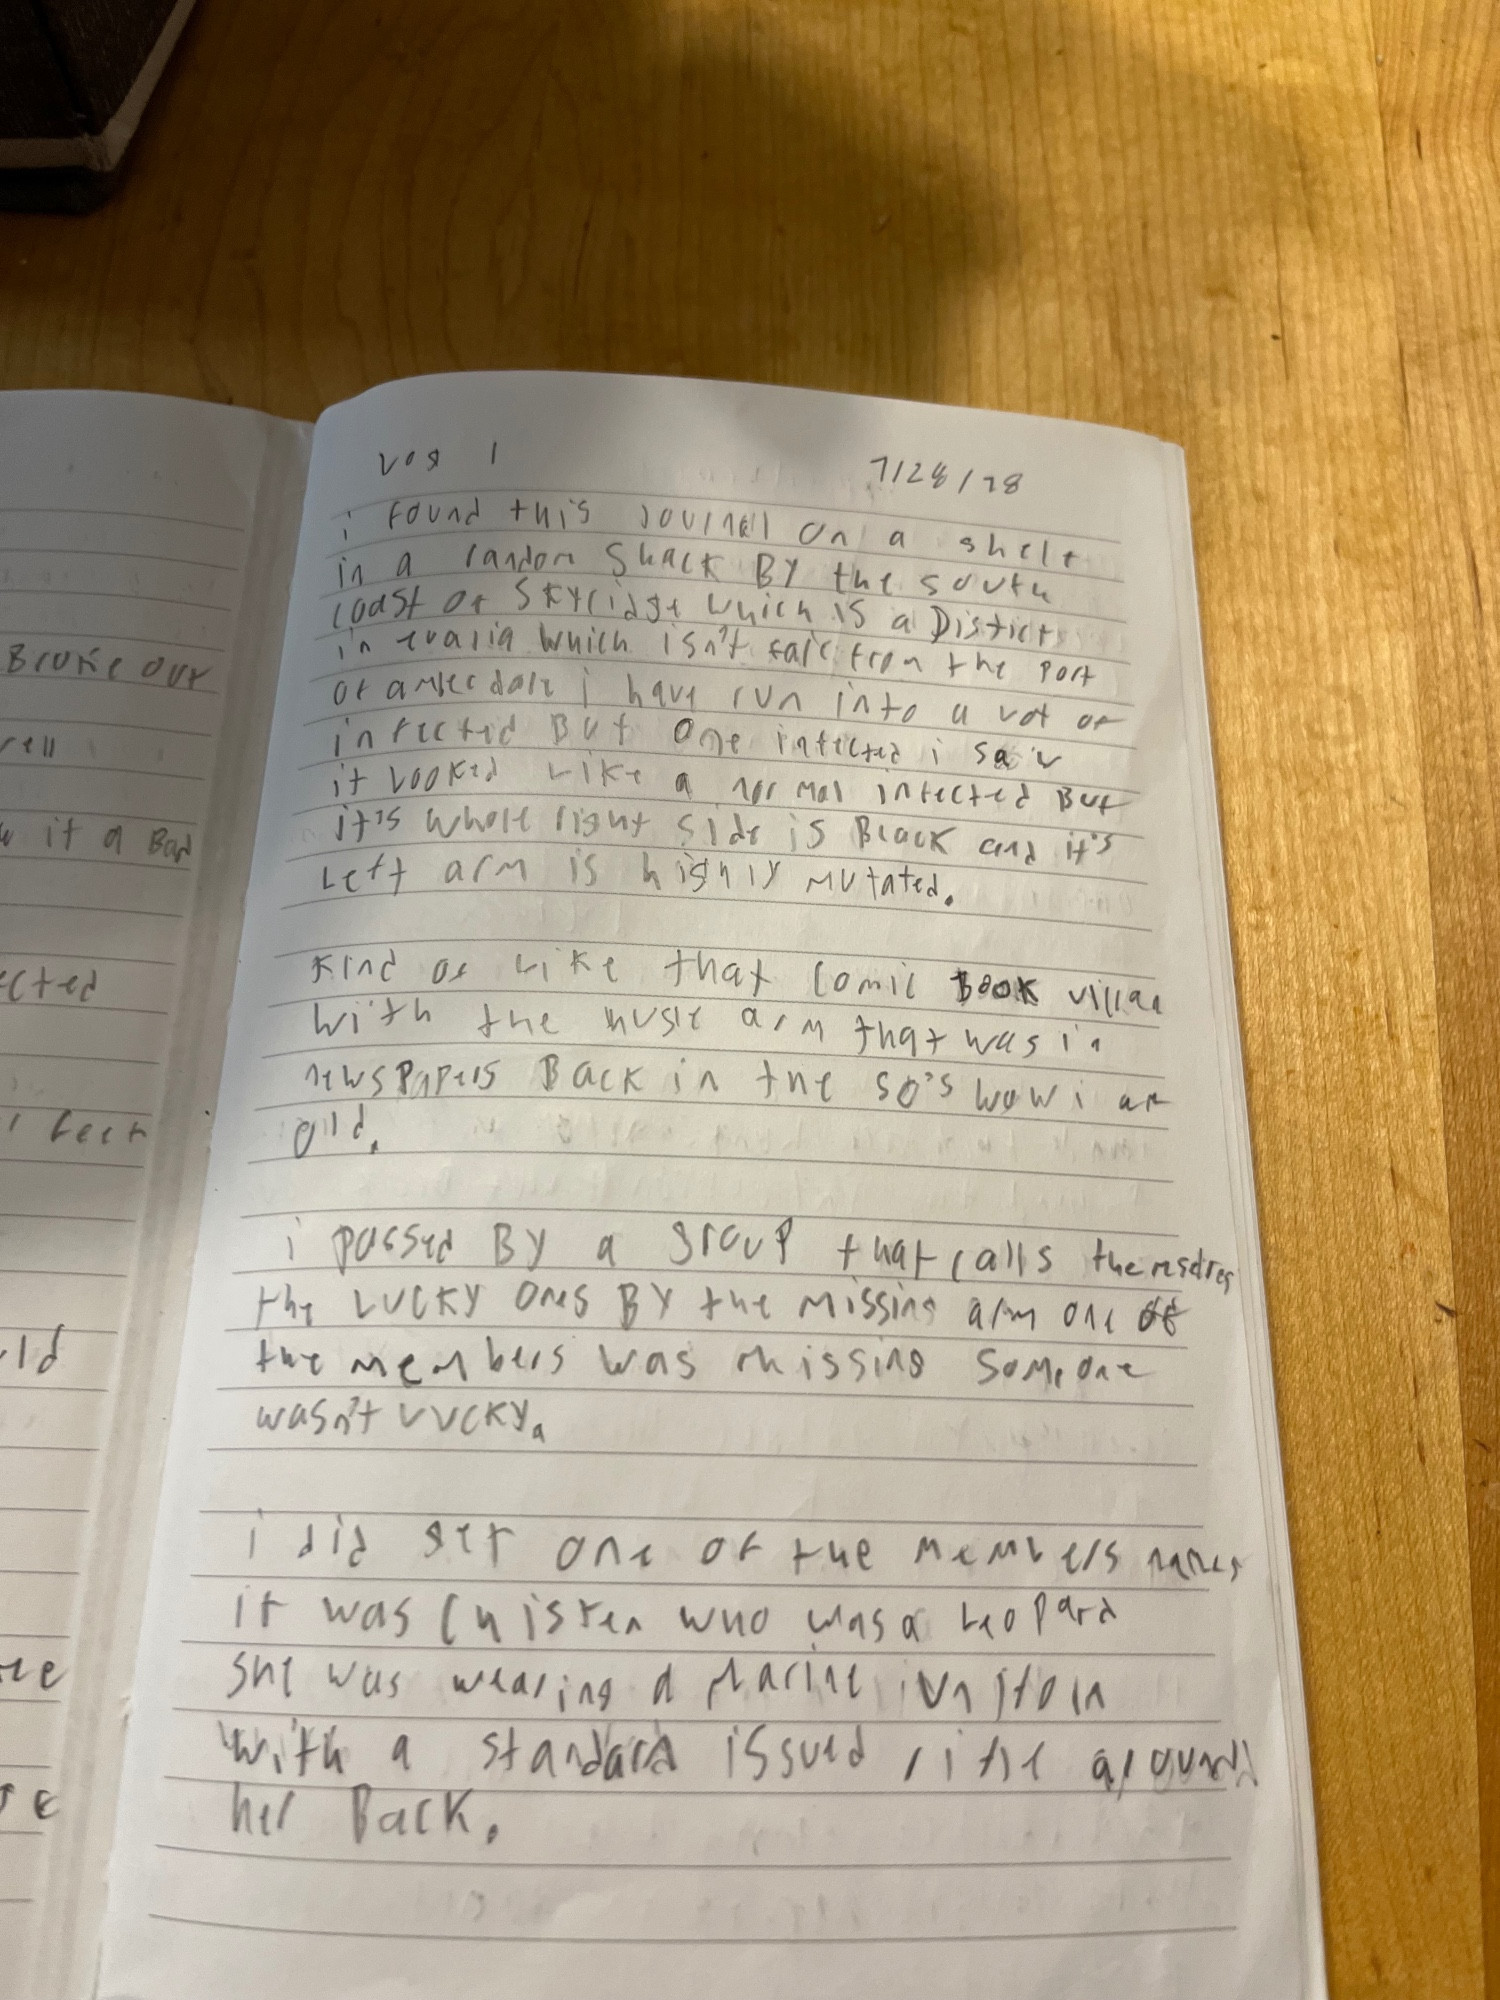 Log 1 7/28/78
i found this journal on a shelf
in a random shack By the south
coast of Skyridge which is a District
in evaria which isn't far from the port
of amberdale i have run into a lot of
infected But one infected i saw
it looked like a normal infected But
it's whole right side is Black and it's
Left arm is highly mutated.
kind of like that comic Book villan
with the arm that was in
newspapers Back in the 50's wow i am
old.
i passed By a group that calls themselves
the Lucky ones By the missing arm one of
the members was missing someone
wasn't Lucky.
i did get one of the members names
it was who was a Leopard
she was wearing a Marine
with a standard issued rifle around
her Back.
Broke out
it a Bad